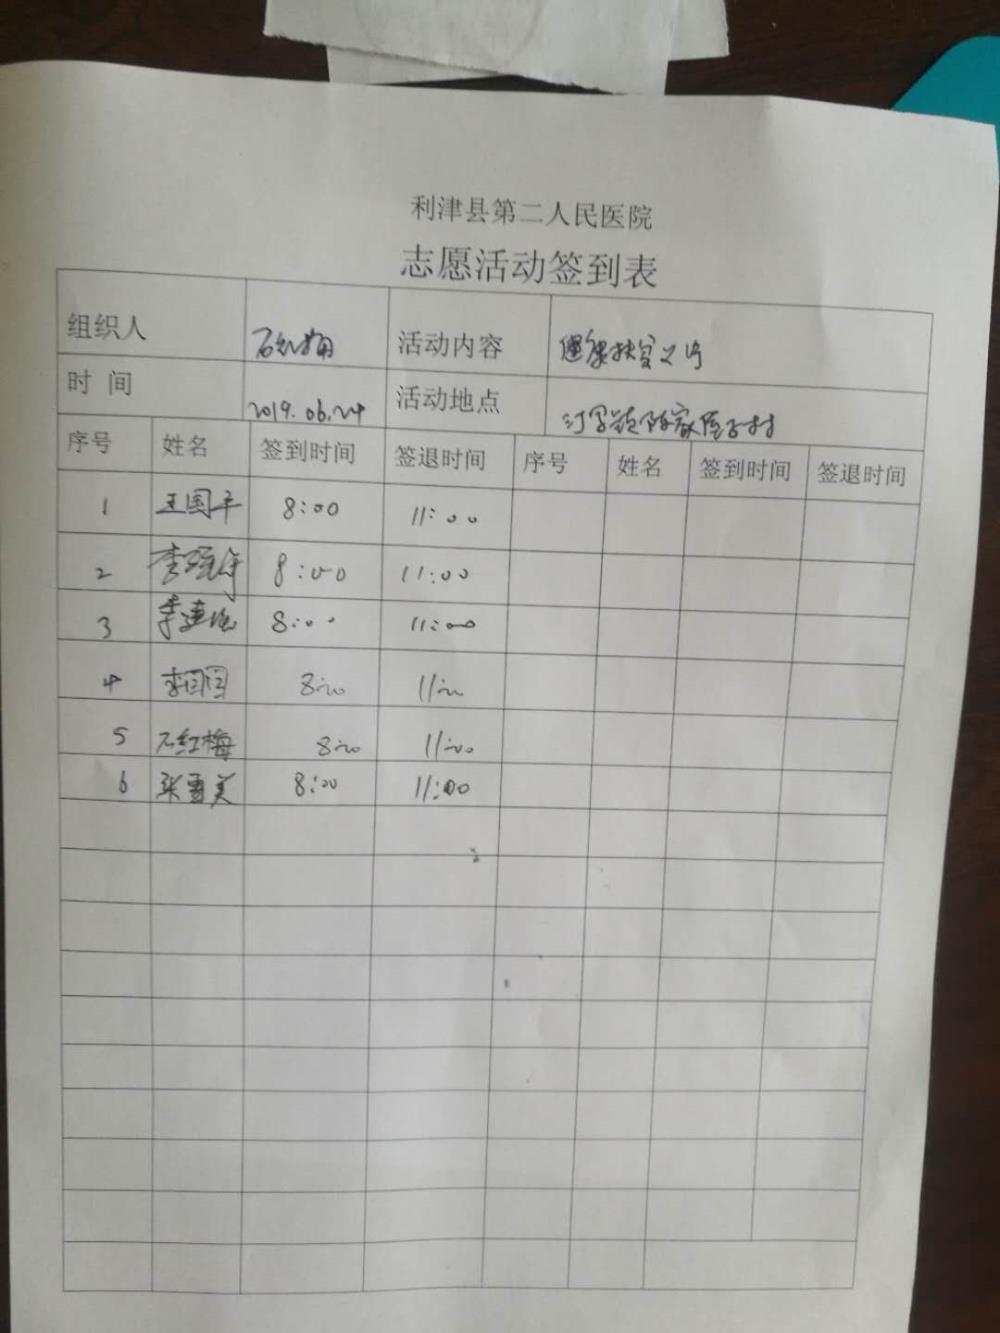 利津县第二人民医院
志愿活动签到表
组织人 石红梅 活动内容 健康扶贫义诊
时 间 2019.06.24 活动地点 汀罗镇陈家屋子村
序号 姓名 签到时间 签退时间 序号 姓名 签到时间 签退时间
1 王国平 8:00 11:00
2 李 8:00 11:00
3 李建 8:00 11:00
4 李闫闫 8:00 11:00
5 石红梅 8:00 11:00
6 张雪美 8:00 11:00